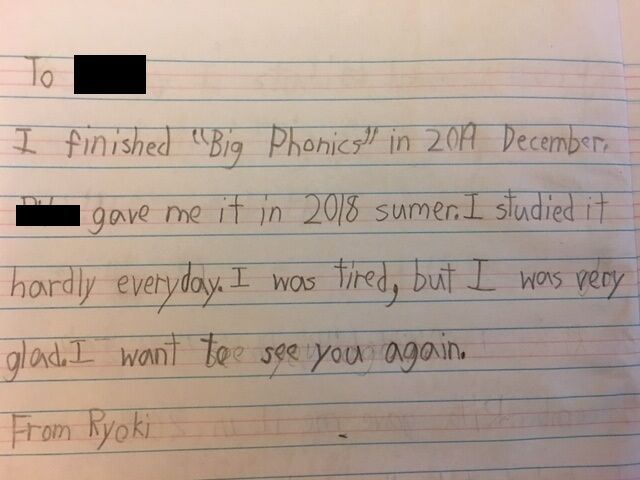 To
I finished "Big Phonics" in 2019 December.
gave me it in 2018 sumer. I studied it
hardly everyday. I was tired, but I was very
glad. I want to see you again.
From Ryoki